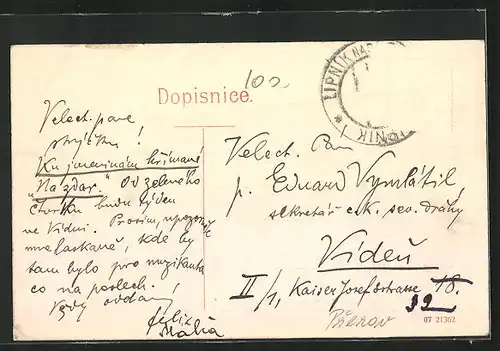 Dopisnice.
10 2
LIPNÍK NAD
LIPNIK
Velect. pane
strýčku!
Ku jmeninám hřímavé
"Na zdar." Od zeleného
čtvrtku budu týden
ve Vídni. Prosím, upozorněte
mne laskavě, kde by
tam bylo pro muzikanta
co na poslech!
Vždy oddaný
Felix
Velect. Pan
p. Eduard Vymlátil,
sekretář c.k. sev. dráhy
Vídeň
II/1, Kaiser Josefstrasse 18.
32
Přerov
07 21362